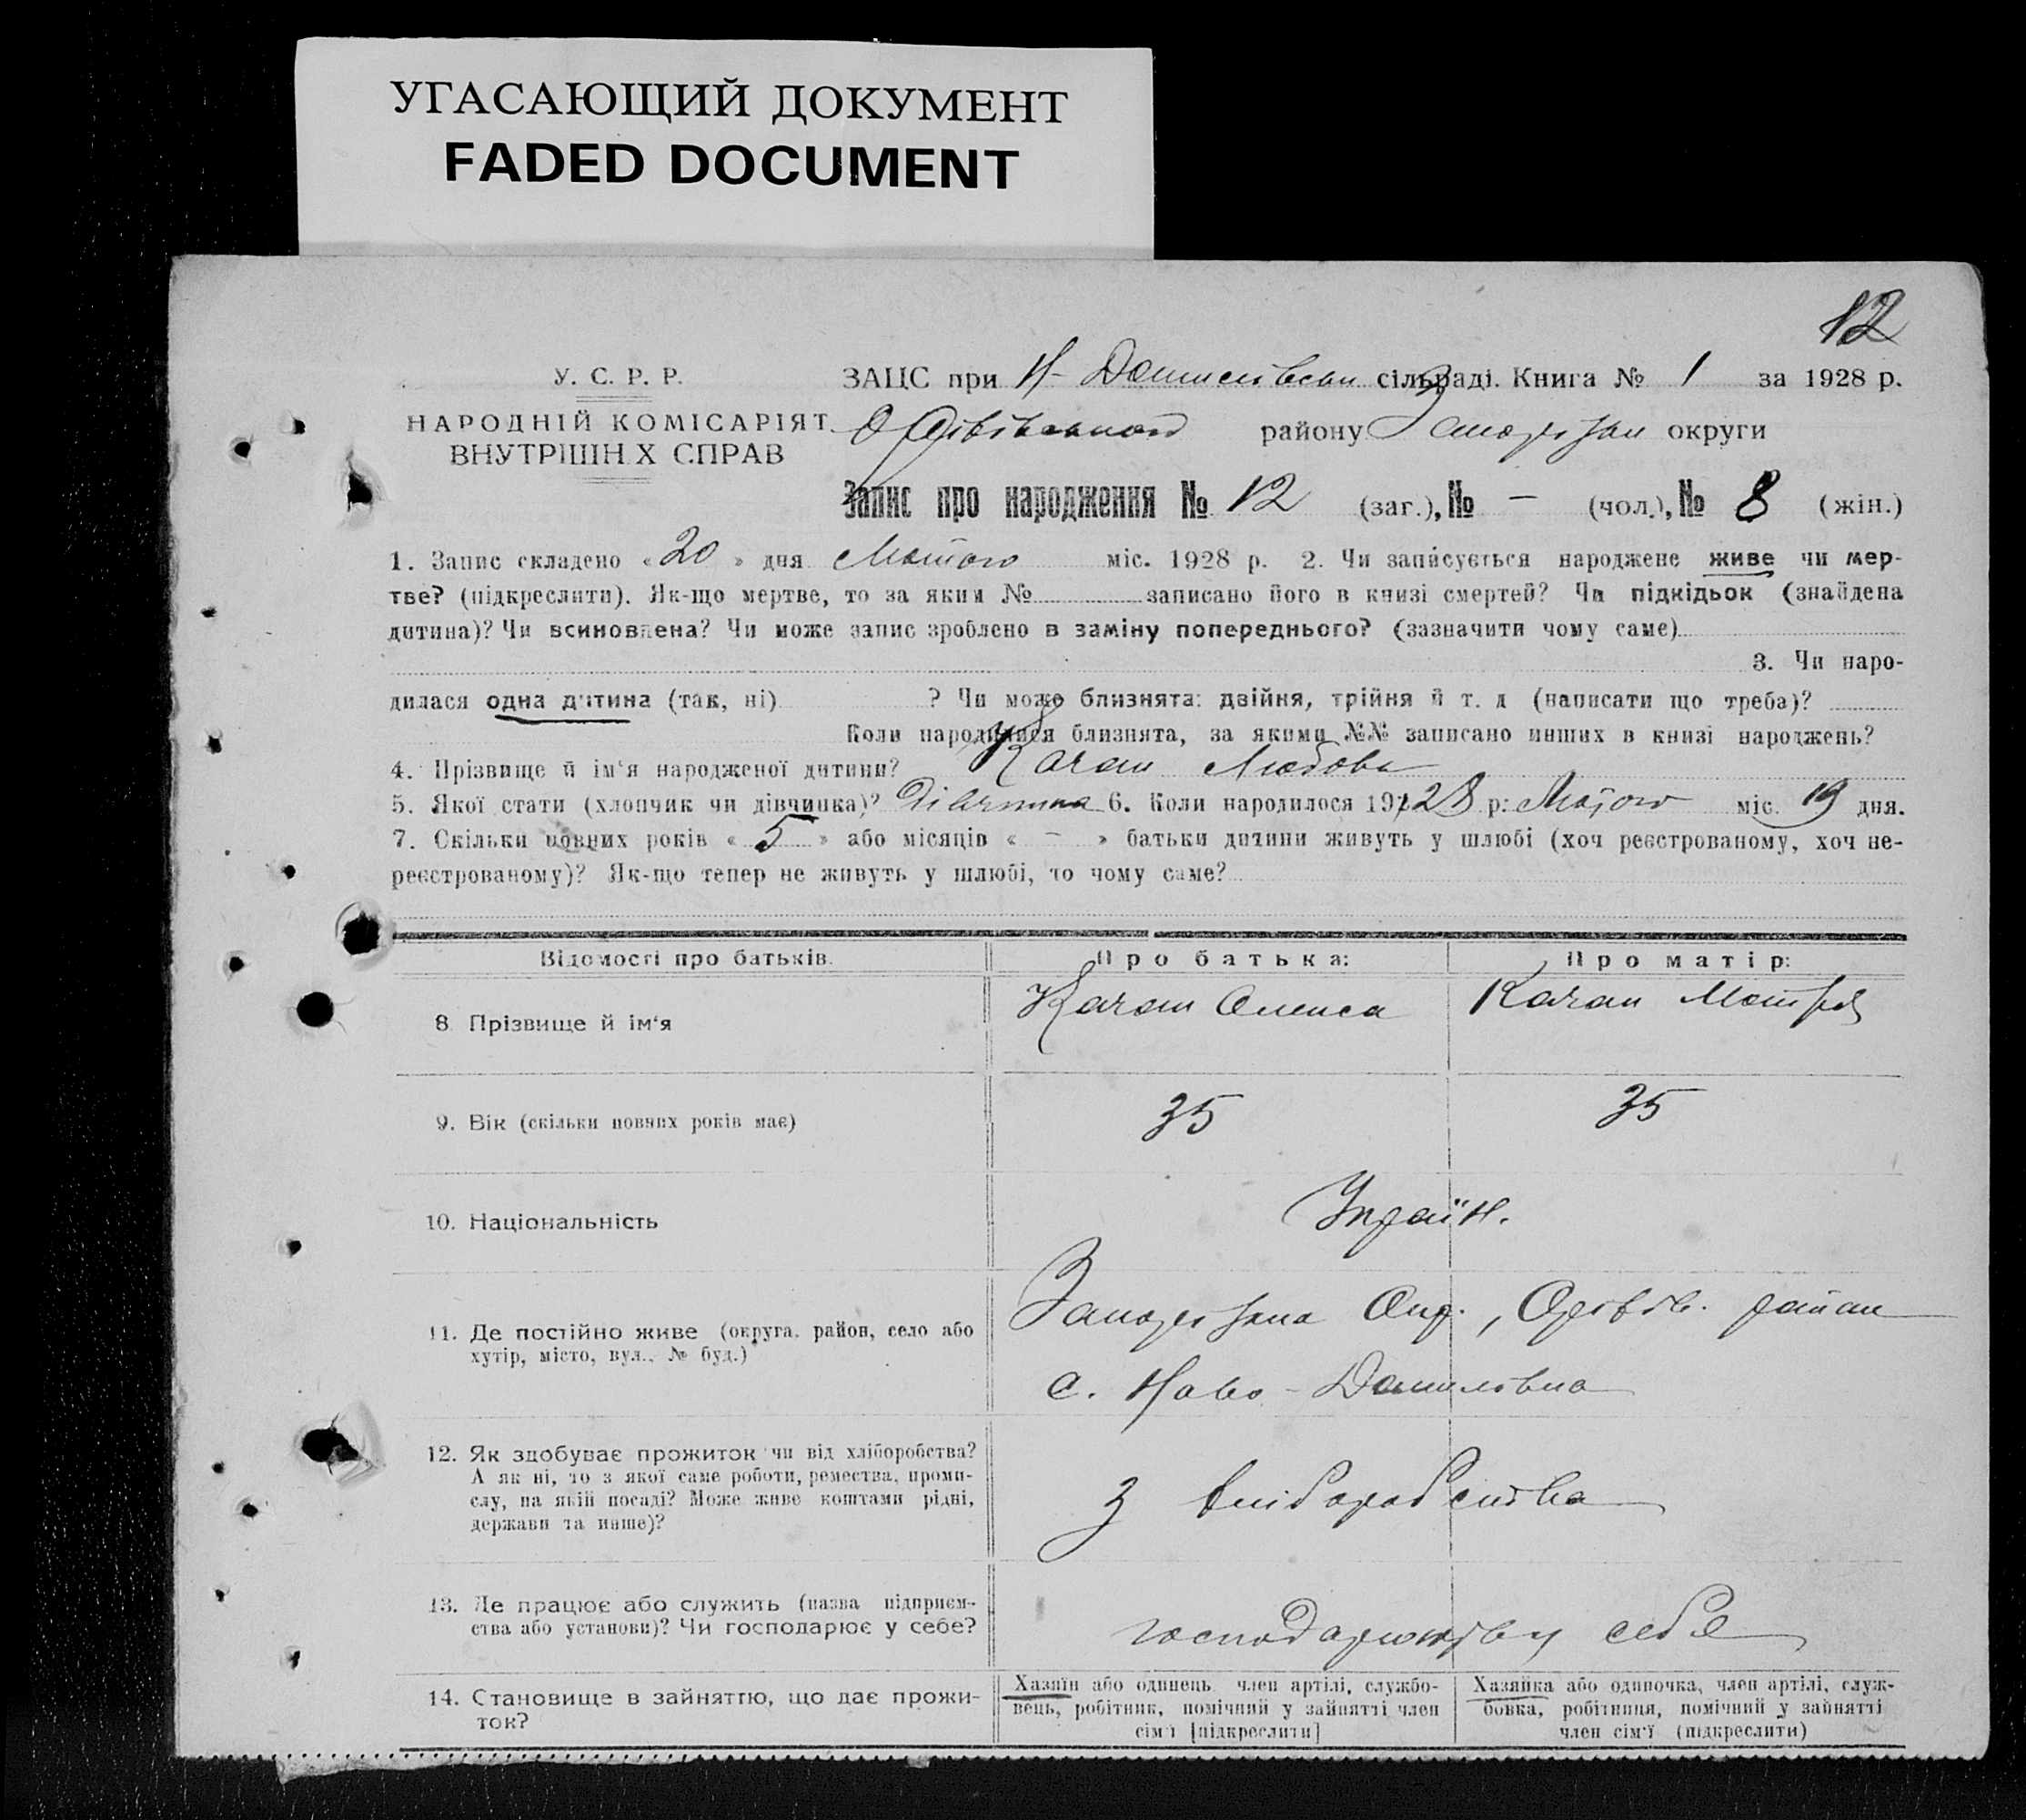 УГАСАЮЩИЙ ДОКУМЕНТ
FADED DOCUMENT
12
У. С. Р. Р.
НАРОДНІЙ КОМІСАРІЯТ
ВНУТРІШН Х СПРАВ
ЗАЦС при Н-Данилівськ сільраді. Книга № 1 за 1928 р.
Оріхівського району Запоріжск округи
Запис про народження № 12 (заг.), № — (чол.), № 8 (жін.)
1. Запис складено « 20 » дня Лютого міс. 1928 р. 2. Чи записується народжене живе чи мер-
тве? (підкреслити). Як-що мертве, то за яким № записано його в книзі смертей? Чи підкідьок (знайдена
дитина)? Чи всиновлена? Чи може запис зроблено в заміну попереднього? (зазначити чому саме)
3. Чи наро-
дилася одна дитина (так, ні) ? Чи може близнята: двійня, трійня й т. д (написати що треба)?
Коли народилися близнята, за якими №№ записано инших в книзі народжень?
4. Прізвище й ім'я народженої дитини? Качан Любовь
5. Якої стати (хлопчик чи дівчинка)? Дівчинка 6. Коли народилося 1928 р: Лютого міс. 19 дня.
7. Скільки повних років « 5 » або місяців « — » батьки дитини живуть у шлюбі (хоч реєстрованому, хоч не-
реєстрованому)? Як-що тепер не живуть у шлюбі, то чому саме?
Відомості про батьків. Про батька: Про матір:
8 Прізвище й ім'я Качан Олекса Качан Мотря
9. Вік (скільки повних років має) 35 35
10. Національність Україн.
11. Де постійно живе (округа, район, село або
хутір, місто, вул., № буд.)
Запоріжка Окр., Оріхів. район
с. Ново-Данилівка
12. Як здобуває прожиток чи від хліборобства?
А як ні, то з якої саме роботи, ремества, проми-
слу, на якій посаді? Може живе коштами рідні,
держави та инше)?
З хліборобства
13. Де працює або служить (назва підприєм-
ства або установи)? Чи господарює у себе?
господарюють у себе
14. Становище в зайняттю, що дає прожи-
ток?
Хазяїн або одинець, член артілі, службо-
вець, робітник, помічний у зайнятті член
сім'ї [підкреслити]
Хазяйка або одиночка, член артілі, служ-
бовка, робітниця, помічний у зайнятті
член сім'ї (підкреслити)